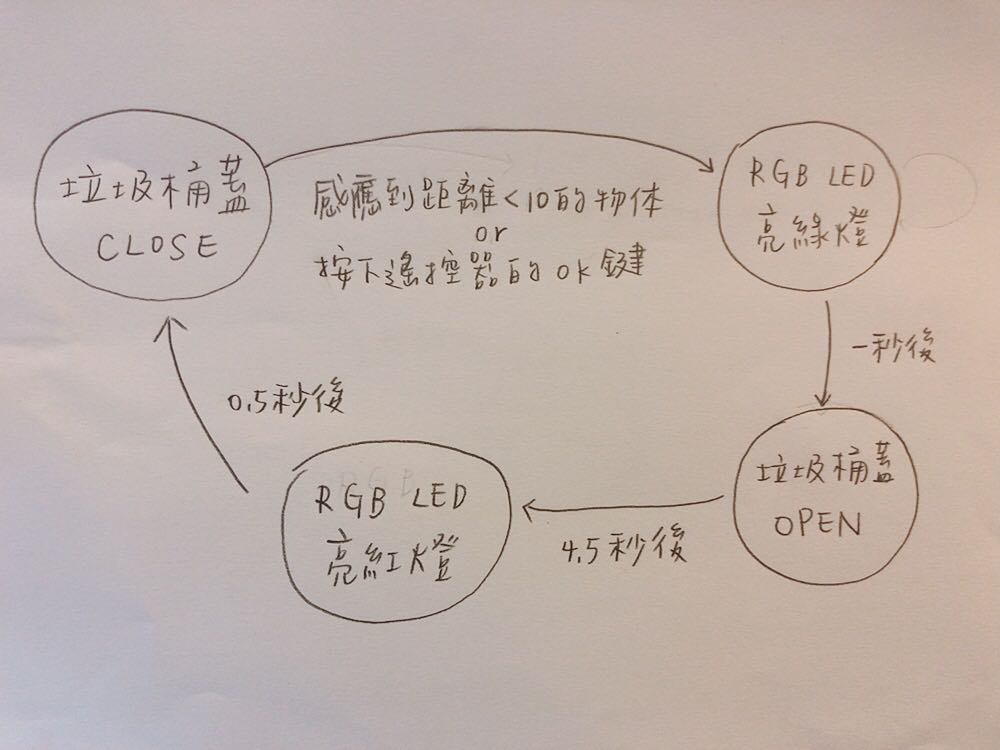 垃圾桶蓋
CLOSE
感應到距離<10的物体
or
按下遙控器的ok鍵
RGB LED
亮綠燈
一秒後
垃圾桶蓋
OPEN
4.5秒後
RGB LED
亮紅燈
0.5秒後